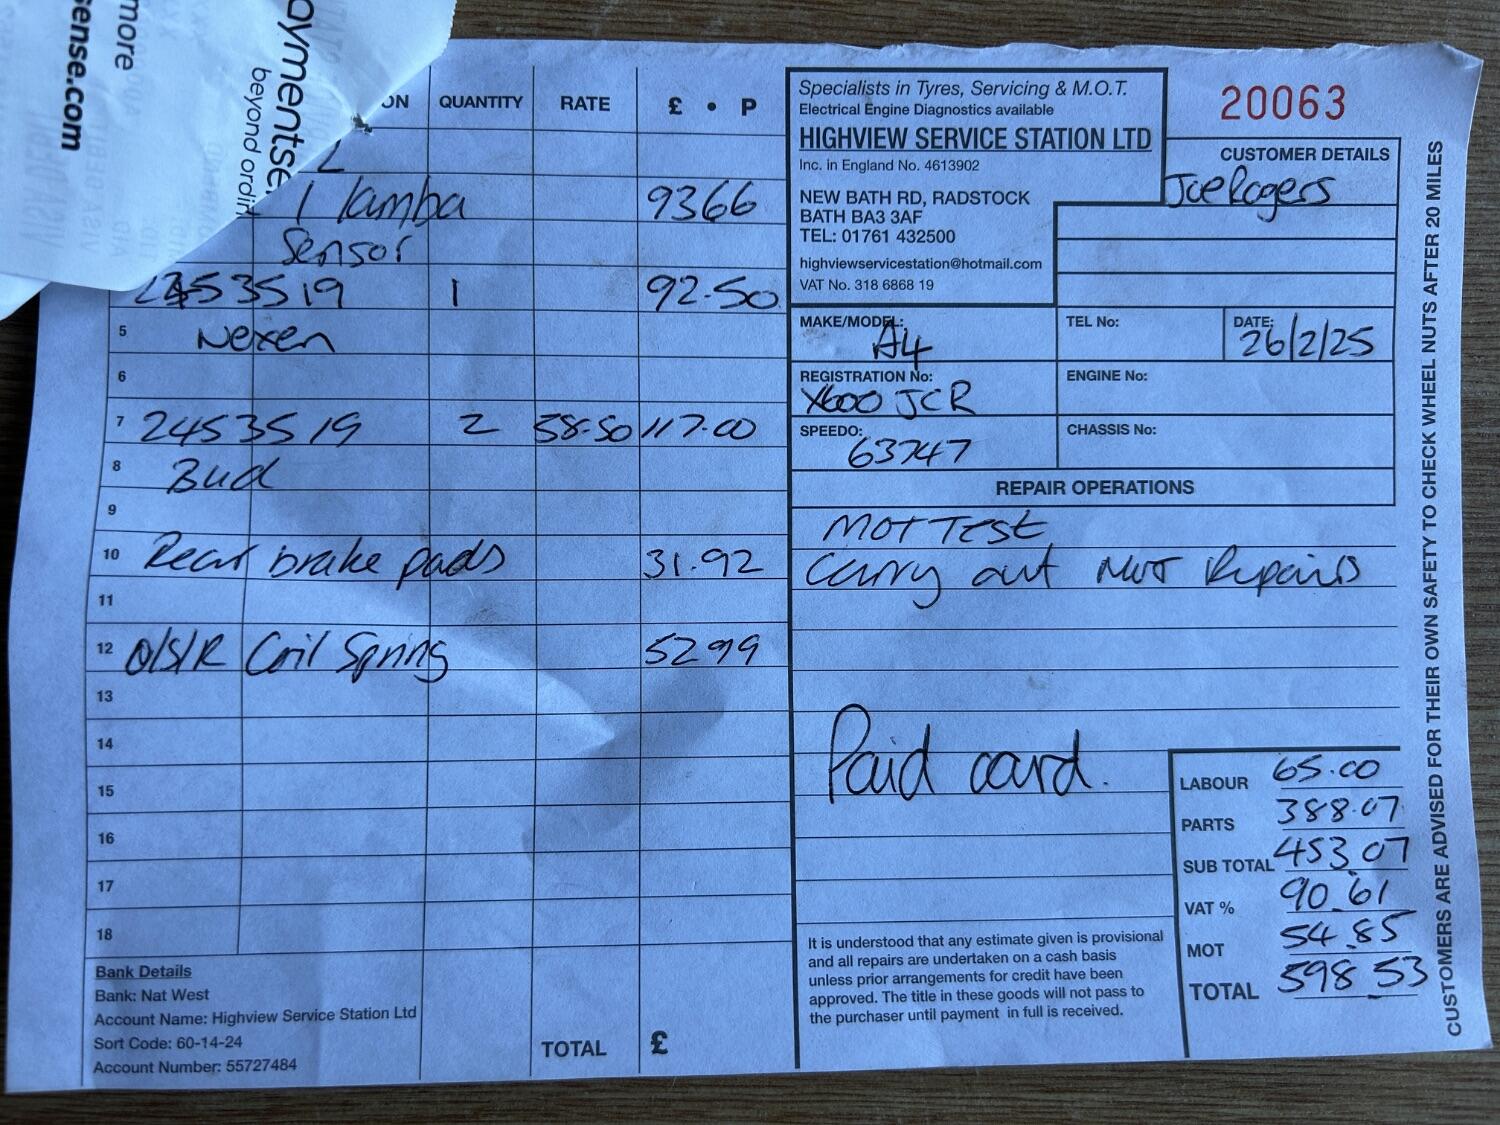 aymentse
beyond ordin
more
sense.com
ON QUANTITY RATE £ • P
1 lamba 9366
Sensor
2453519 1 92.50
5 Nexen
6
7 2453519 2 58.50 117.00
8 Bud
9
10 Rear brake pads 31.92
11
12 O/S/R Coil Spring 5299
13
14
15
16
17
18
Bank Details
Bank: Nat West
Account Name: Highview Service Station Ltd
Sort Code: 60-14-24
Account Number: 55727484
TOTAL £
Specialists in Tyres, Servicing & M.O.T.
Electrical Engine Diagnostics available
HIGHVIEW SERVICE STATION LTD
Inc. in England No. 4613902
NEW BATH RD, RADSTOCK
BATH BA3 3AF
TEL: 01761 432500
highviewservicestation@hotmail.com
VAT No. 318 6868 19
20063
CUSTOMER DETAILS
Joe Rogers
MAKE/MODEL: A4
TEL No:
DATE: 26/2/25
REGISTRATION No: X600 JCR
ENGINE No:
SPEEDO: 63747
CHASSIS No:
REPAIR OPERATIONS
MOT Test
Carry out MOT Repairs
Paid card.
LABOUR 65.00
PARTS 388.07
SUB TOTAL 453.07
VAT % 90.61
MOT 54.85
TOTAL 598.53
It is understood that any estimate given is provisional
and all repairs are undertaken on a cash basis
unless prior arrangements for credit have been
approved. The title in these goods will not pass to
the purchaser until payment in full is received.
CUSTOMERS ARE ADVISED FOR THEIR OWN SAFETY TO CHECK WHEEL NUTS AFTER 20 MILES